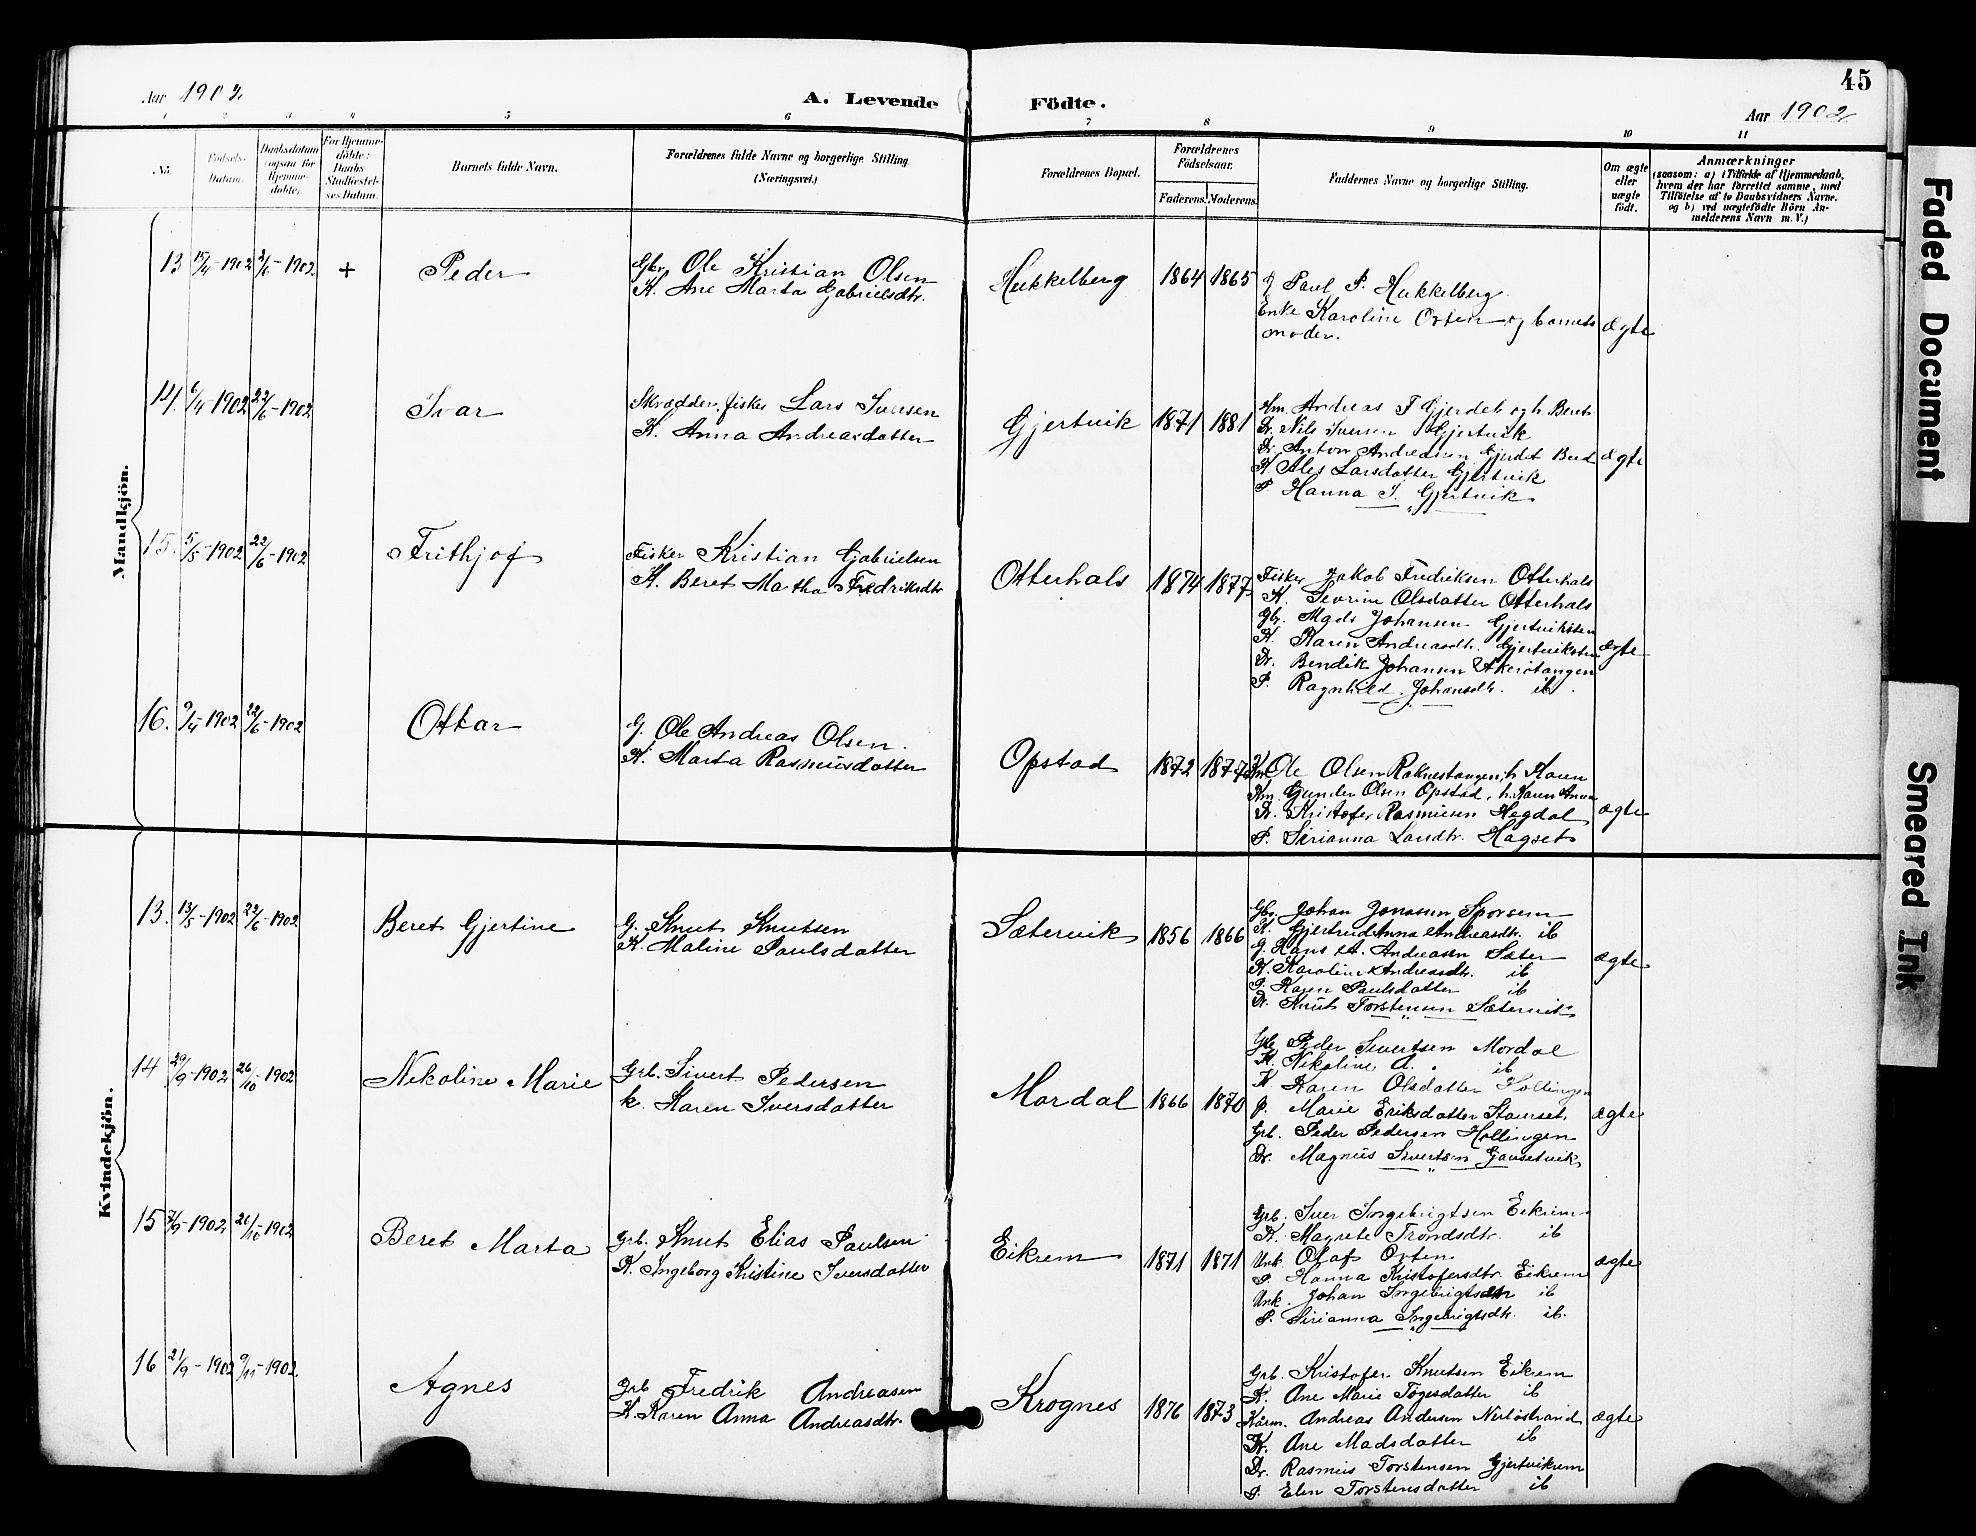 45
Aar 1902
A. Levende Födte.
Aar 1902
1 2 3 4 5 6 7 8 9 10 11
No.
Födsels-Datum.
Daabsdatum (ogsaa for Hjemme-döbte).
For Hjemme-döbte: Daabs Stadfæstel-ses Datum.
Barnets fulde Navn.
Forældrenes fulde Navne og borgerlige Stilling
(Næringsvei.)
Forældrenes Bopæl.
Forældrenes Födselsaar.
Faderens. Moderens.
Faddernes Navne og borgerlige Stilling.
Om ægte eller uægte födt.
Anmærkninger
(saasom: a) i Tilfælde af Hjemmedaab,
hvem der har forrettet samme, med
Tilföielse af to Daabsvidners Navne,
og b) ved uægtefödte Börn An-
melderens Navn m. V.)
Mandkjön.
13 15/4-1902 2/6-1902 + Peder
Gbr. Ole Kristian Olsen
K. Ane Marta Gabrielsdtr.
Hukkelberg 1864 1865
G Paul P. Hukkelberg
Enke Karoline Orten og barnets
moder.
ægte
14. 6/4-1902 22/6-1902 Ivar
Skrædder, fisker Lars Iversen
K. Anna Andreasdatter
Gjertvik 1871 1881
Hm. Andreas T Gjerdet og h. Beret
Dr. Nils Iversen Gjertvik
Dr. Anton Andreasen Gjerdet Bud
K Ales Larsdatter Gjertvik
P Hanna I. Gjertvik
ægte
15. 5/5-1902 22/6-1902 Frithjof
Fisker Kristian Gabrielsen
K. Beret Martha Fredriksdtr
Otterhals 1874 1877
Fisker Jakob Fredriksen Otterhals
K. Sevrine Olsdatter Otterhals
Gbr. Mads Johansen Gjertviksten
K. Karen Andreasdtr. Gjertviksten
Dr. Bendik Johansen Akerötangen
P. Ragnhild Johansdtr. ib.
ægte
16. 9/4-1902 22/6-1902 Ottar
G. Ole Andreas Olsen.
K. Marta Rasmusdatter
Opstad 1872 1877
Km Ole Olsen Raknestangen, h. Karen
Km. Gunder Olsen Opstad, h. Karen Anna
Dr. Kristofer Rasmusen Hegdal
P. Sirianna Larsdtr. Hagset
ægte
Kvindekjön.
13. 13/5-1902 22/6-1902 Beret Gjertine
G. Knut Knutsen
K. Maline Paulsdatter
Sætervik 1856 1866
Gbr. Johan Jonassen Sporsem
K. Gjertrud Anna Andreasdtr. ib
G. Hans A. Andreasen Sæter
K. Karoline Andreasdtr. ib
P. Karen Paulsdatter ib
Dr. Knut Torstensen Sætervik
ægte
14 29/9-1902 26/10-1902 Nekoline Marie
Grb. Sivert Pedersen
k. Karen Iversdatter
Mordal 1866 1870
Gb. Peder Sivertsen Mordal
K. Nikoline A. ib
K Karen Olsdatter Hollingen
P. Marie Eriksdatter Stavrset
Grb. Peder Pedersen Hollingen
Dr. Magnus Sivertsen Gausetvik
ægte
15 7/9-1902 26/10-1902 Beret Marta
Grb. Knut Elias Paulsen
K. Ingeborg Kristine Iversdatter
Eikrem 1871 1871
Grb. Iver Ingebrigtsen Eikrem
K. Magrete Trondsdtr. ib
Unk. Olaf Orten
P. Hanna Kristofersdtr. Eikrem
Unk. Johan Ingebrigtsen ib
P. Sirianna Ingebrigtsdtr. ib.
ægte
16 21/9-1902 9/11-1902. Agnes
Grb Fredrik Andreasen
K. Karen Anna Andreasdtr.
Krognes 1876 1873
Grb. Kristofer Knutsen Eikrem
K. Ane Marie Tögesdatter ib
Kårm. Andreas Andersen Nerlöstrand
K. Ane Madsdatter ib
Dr. Rasmus Torstensen Gjertvikrem
P. Elen Torstensdatter ib
ægte
Faded Document
Smeared Ink